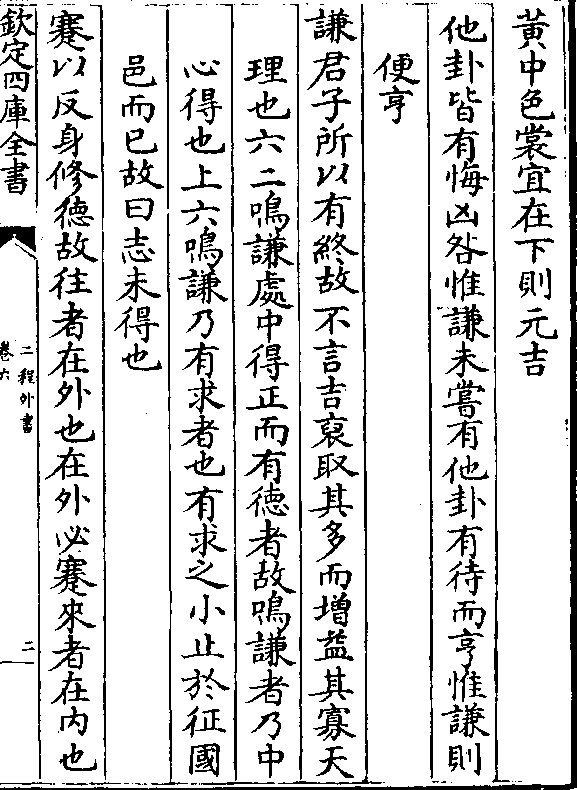 黃中色裳宜在下則元吉
他卦皆有悔凶咎惟謙未嘗有他卦有待而亨惟謙則
便亨
謙君子所以有終故不言吉裒取其多而增益其寡天
理也六二鳴謙處中得正而有德者故鳴謙者乃中
心得也上六鳴謙乃有求者也有求之小止於征國
邑而已故曰志未得也
蹇以反身修德故往者在外也在外必蹇來者在内也
欽定四庫全書
二程外書
卷六
二